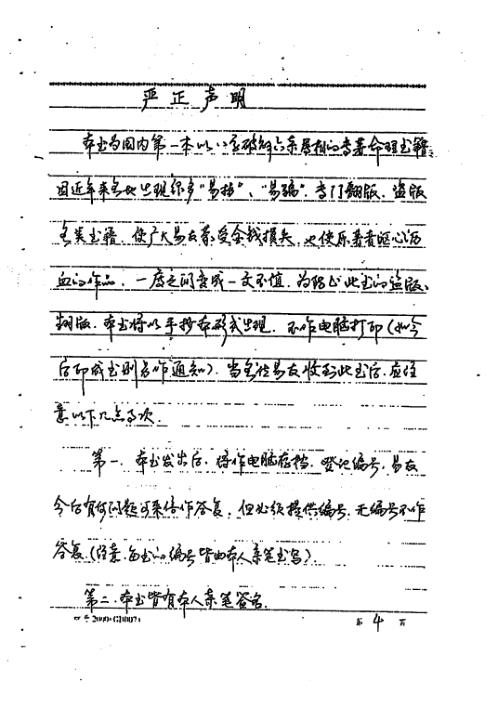 严正声明
本书为国内第一本以八字破解六亲层机的专著命理书籍。
因近年来各地出现许多“易招”、“易骗”专门翻版、盗版
各类书籍，使广大易友蒙受金钱损失，也使原著者呕心沥
血的作品，一度之间变成一文不值，为防止此书的盗版、
翻版，本书将以手抄本形式出现，不作电脑打印（如今
后印成书则另作通知）。当各位易友收到此书后，应注
意以下几点事次。
第一、本书发出后，将作电脑存档，登记编号，易友
今后有何问题可来信作答复，但必须提供编号，无编号不作
答复（注意，每书的编号皆由本人亲笔书写）。
第二、本书皆有本人亲笔签名。
第 4 页